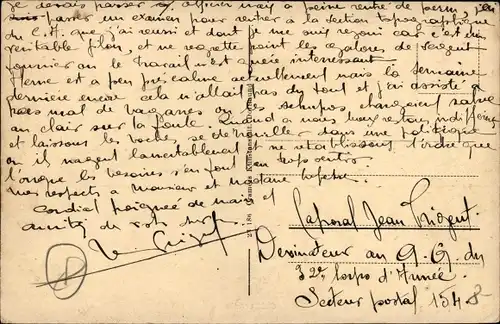 je devais passer officier mais à peine rentré de perm, j'ai
passer un examen pour rentrer à la section topographique
du C.A. que j'ai réussi et dont je me suis réjoui car c'est un
véritable filon, et ne regrette point les galons de sergent
fourrier où le travail n'est guère intéressant.
Herne est à peu près calme actuellement mais la semaine
dernière encore cela n'allait pas du tout et j'ai assisté à
pas mal de bagarres où les schupos chargeaient sabre
au clair sur la foule. Quand à nous nous restons indifférents
et laissons les boches se débrouiller dans une politique
où ils nagent lamentablement et ne rétablissent l'ordre que
lorsque les besoins s'en font trop sentir.
Mes respects à Monsieur et Madame
cordial poignée de main et
amitiés de ton
21 186
Caporal Jean
Dessinateur au Q.G. du
32e Corps d'Armée.
Secteur postal 154